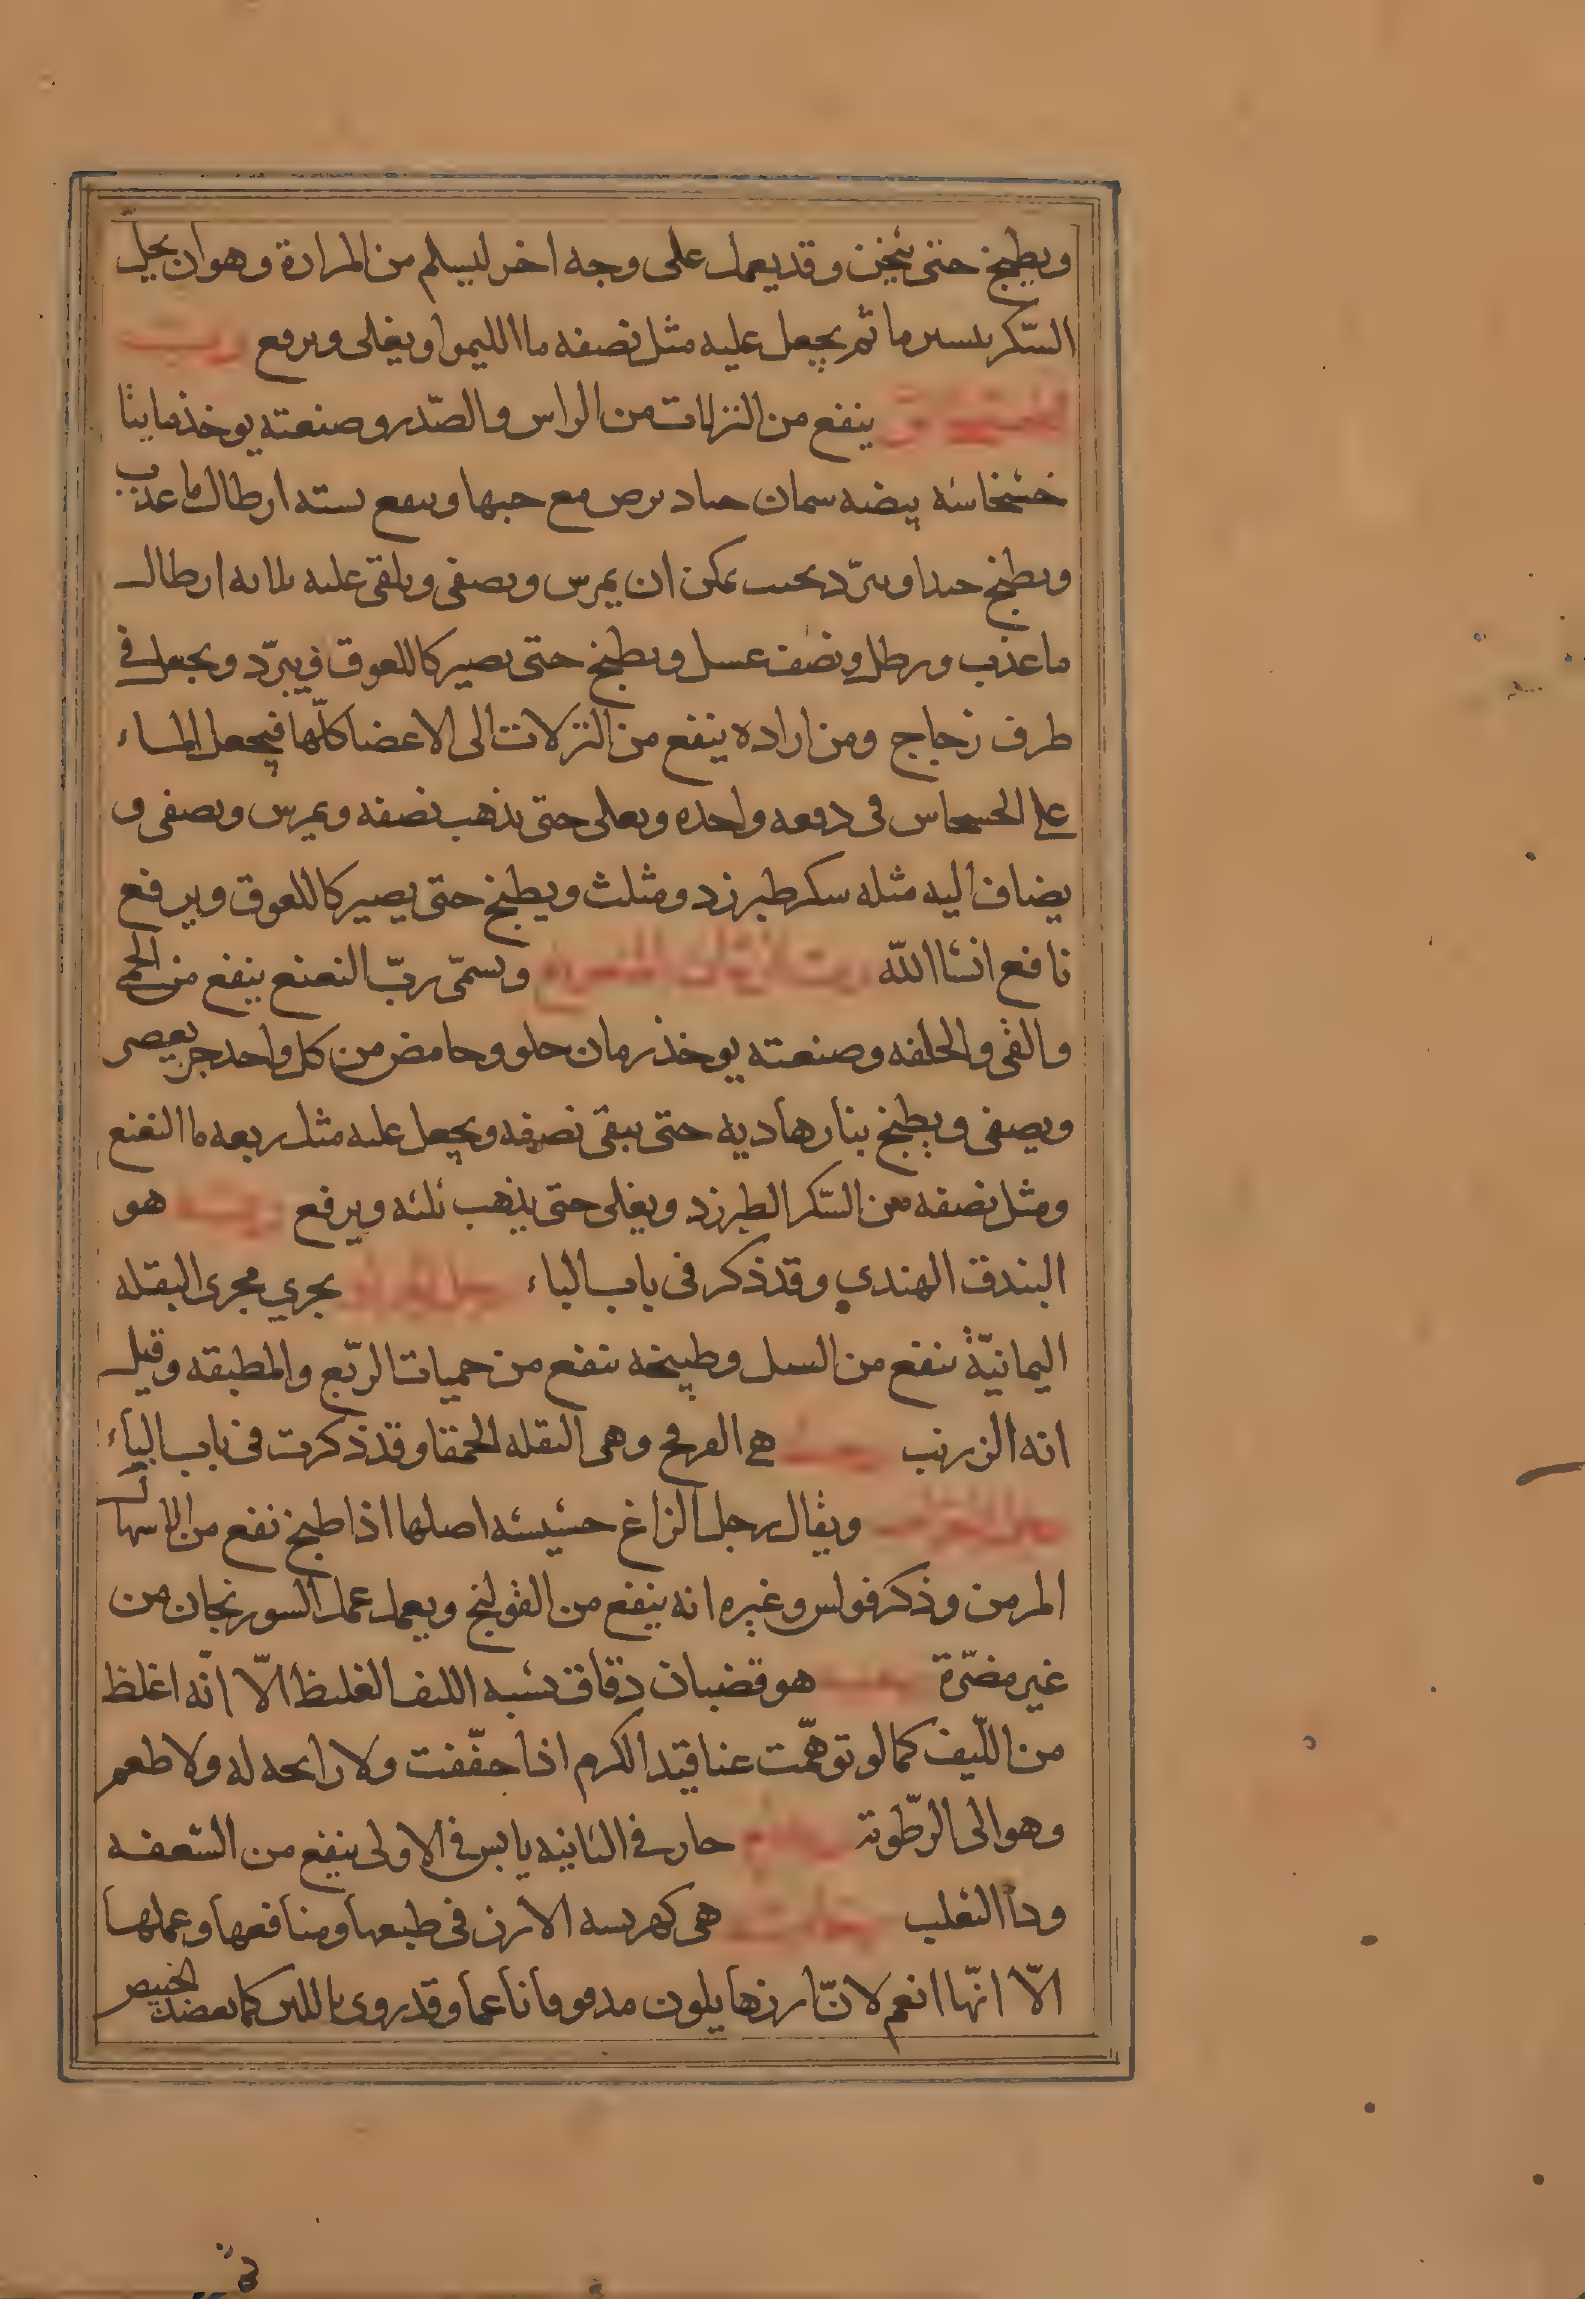 ويطبخ حتى يثخن وقد يعمل على وجه اخر ليسلم من المرارة وهو ان يحلّ
السّكر بيسير ما ثم يجعل عليه مثل نصفه ما الليموا ويغلى ويرفع ربّ
الخشخاش ينفع من النزلات من الراس والصّدر وصنعته يوخذ مايتا
خشخاشه بيضه سمان جياد يرض مع حبها وينقع بسته ارطال ما عذب
ويطبخ جيدا ويبرّد بحيث يمكن ان يمرس ويصفى ويلقى عليه ثلاثه ارطال
ما عذب ورطل ونصف عسل ويطبخ حتى يصير كاللعوق فيبرّد ويجعل في
ظرف زجاج ومن اراده ينفع من النزلات الى الاعضا كلّها فيجعل الماء
على الخشخاش فى دفعه واحده ويغلى حتى يذهب نصفه ويمرس ويصفى و
يضاف اليه مثله سكر طبرزد ومثلث ويطبخ حتى يصير كاللعوق ويرفع
نافع انشا الله ربّ الرمان المنعنع ويسمّى ربّ النعنع ينفع من الحمى
والقى والخلفه وصنعته يوخذ رمان حلو وحامض من كل واحد جز يعصر
ويصفى ويطبخ بنار هاديه حتى يبقى نصفه ويجعل عليه مثل ربعه ما النعنع
ومثل نصفه من السّكر الطبرزد ويغلى حتى يذهب ثلثه ويرفع هو
البندق الهندي وقد ذكر فى باب الباء رجل الغراب يجري مجرى البقله
اليمانيّة ينفع من السل وطبيخه ينفع من حميات الرّبع والمطبقه وقيل
انه الزرنب هي الفرفح وهى البقله الحمقا وقد ذكرت فى باب الباء
رجل الغراب ويقال رجل الزاغ حشيشه اصلها اذا طبخ نفع من الاسهال
المزمن وذكر فولس وغيره انه ينفع من القولنج ويعمل عمل السورنجان من
غير مضرّة هو قضبان دقاق تشبه الليف الغليظ الّا انّه اغلظ
من اللّيف كما لو توهّمت عناقيد الكرم اذا جفّفت ولا رايحه له ولا طعم
وهو الى الرّطوبة حار فى الثانيه يابس فى الاولى ينفع من السّعفه
وداء الثعلب هى كهريسه الارز فى طبعها ومنافعها وعملها
الّا انّها انعم لانّ ارزها يكون مدقوقا ناعما وقد روى باللبن كما بعضد الخبيص